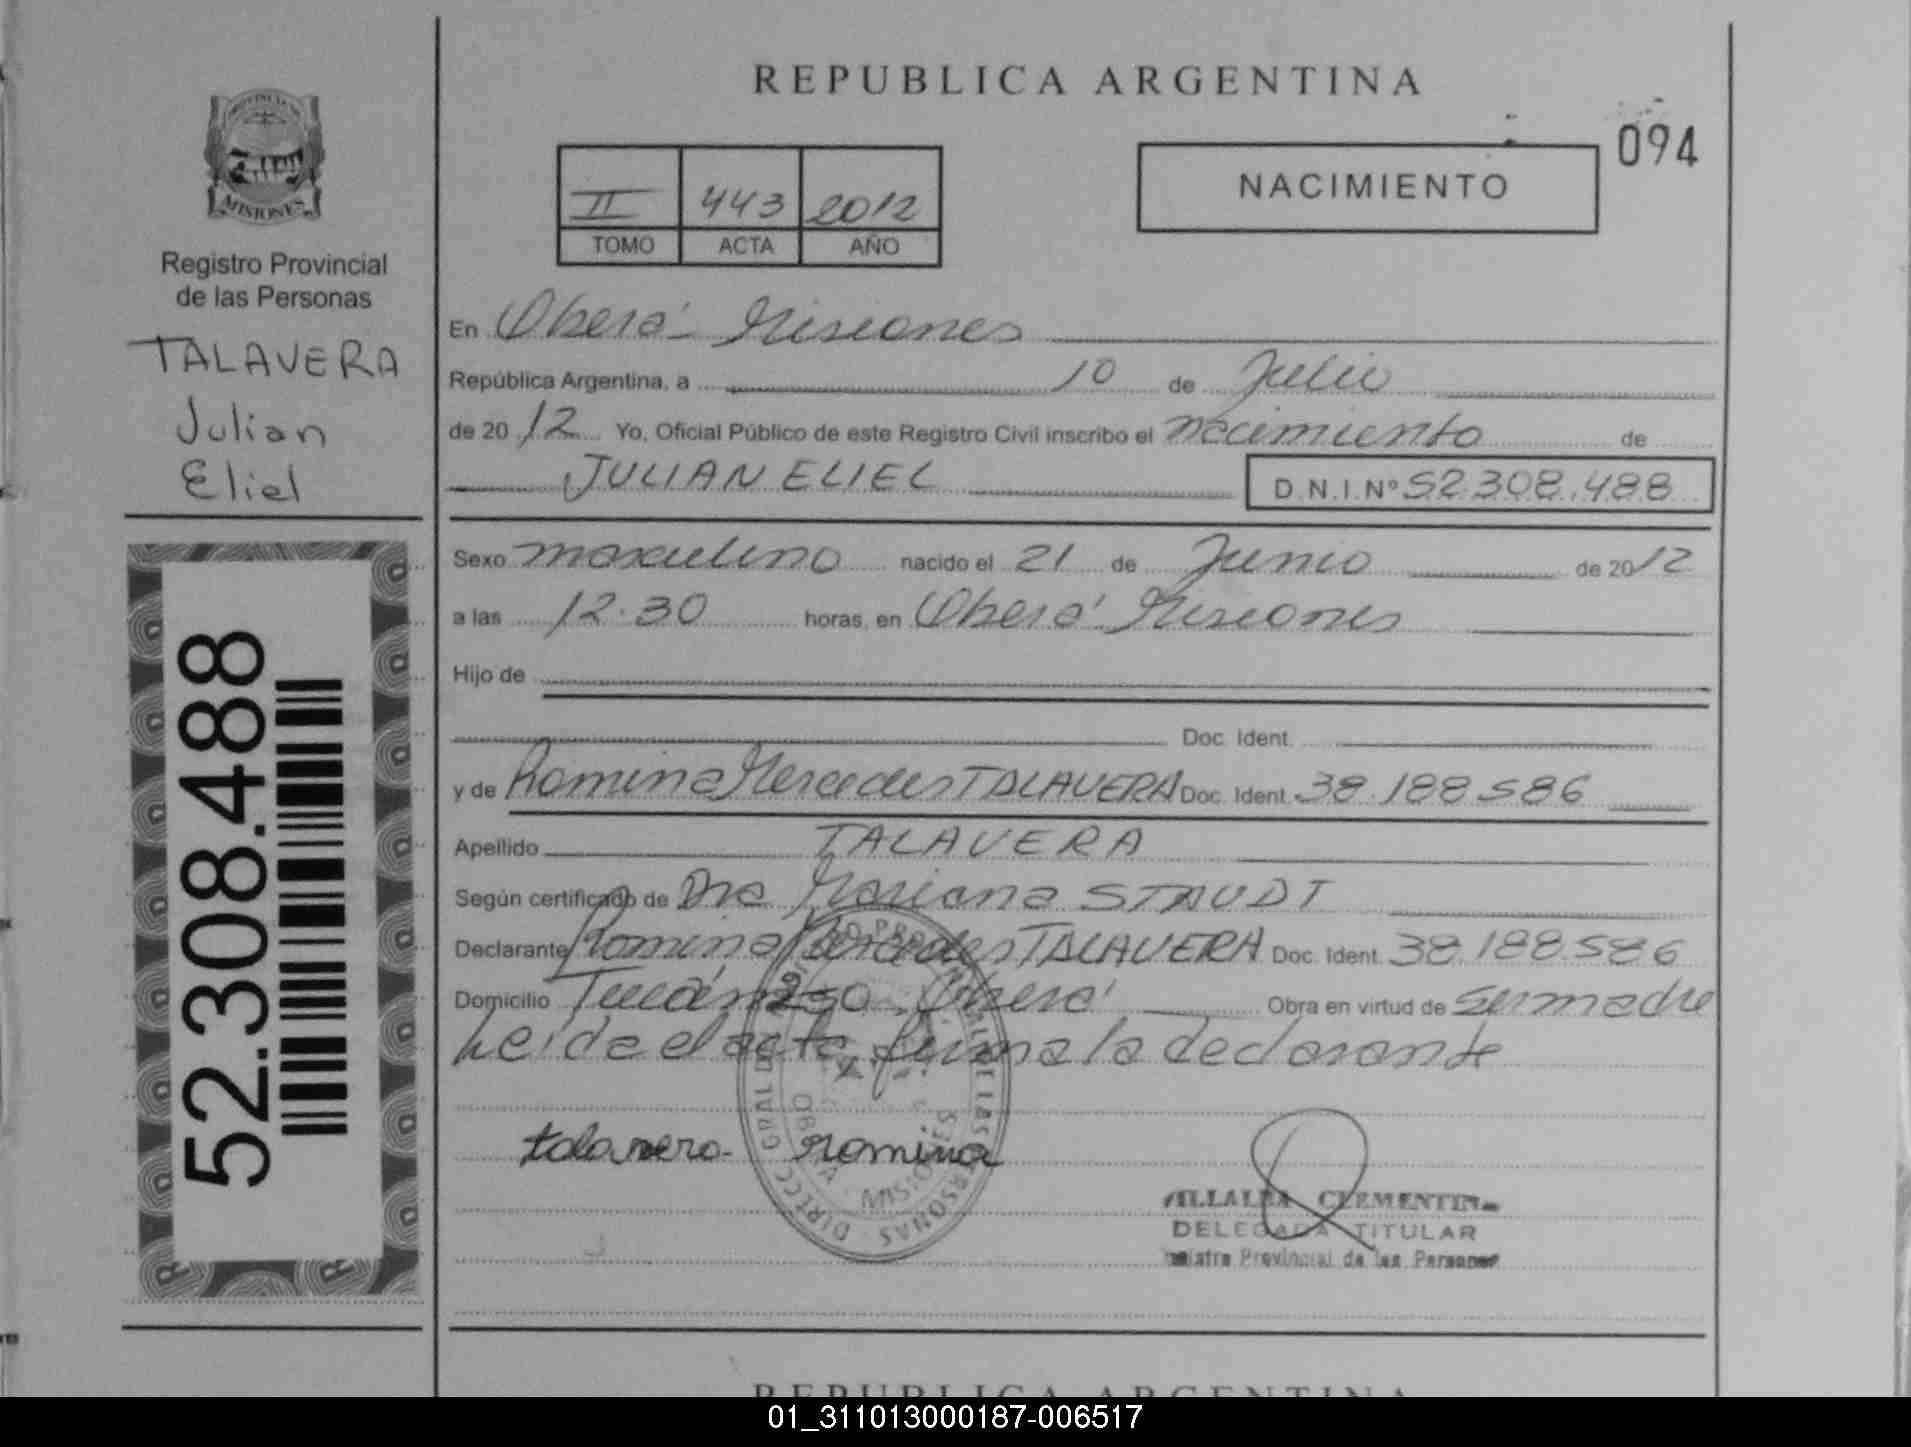 REPUBLICA ARGENTINA
094
NACIMIENTO
II 443 2012
TOMO ACTA AÑO
PROVINCIA DE MISIONES
Registro Provincial
de las Personas
TALAVERA
Julian
Eliel
52.308.488
En Oberá - Misiones
República Argentina, a 10 de Julio
de 2012 Yo, Oficial Público de este Registro Civil inscribo el nacimiento de
JULIAN ELIEL D.N.I.Nº 52.308.488
Sexo masculino nacido el 21 de Junio de 2012
a las 12.30 horas, en Oberá Misiones
Hijo de
Doc. Ident.
y de Romina Mercedes TALAVERA Doc. Ident. 38.188.586
Apellido TALAVERA
Según certificado de Dra Mariana STAUDT
Declarante Romina Mercedes TALAVERA Doc. Ident. 38.188.586
Domicilio Tucumán Oberá Obra en virtud de ser madre
Leída el acta firma la declarante
talavera Romina
MISIONES
VILLALBA CLEMENTINA
DELEGADA TITULAR
Registro Provincial de las Personas
REPUBLICA ARGENTINA
01_311013000187-006517